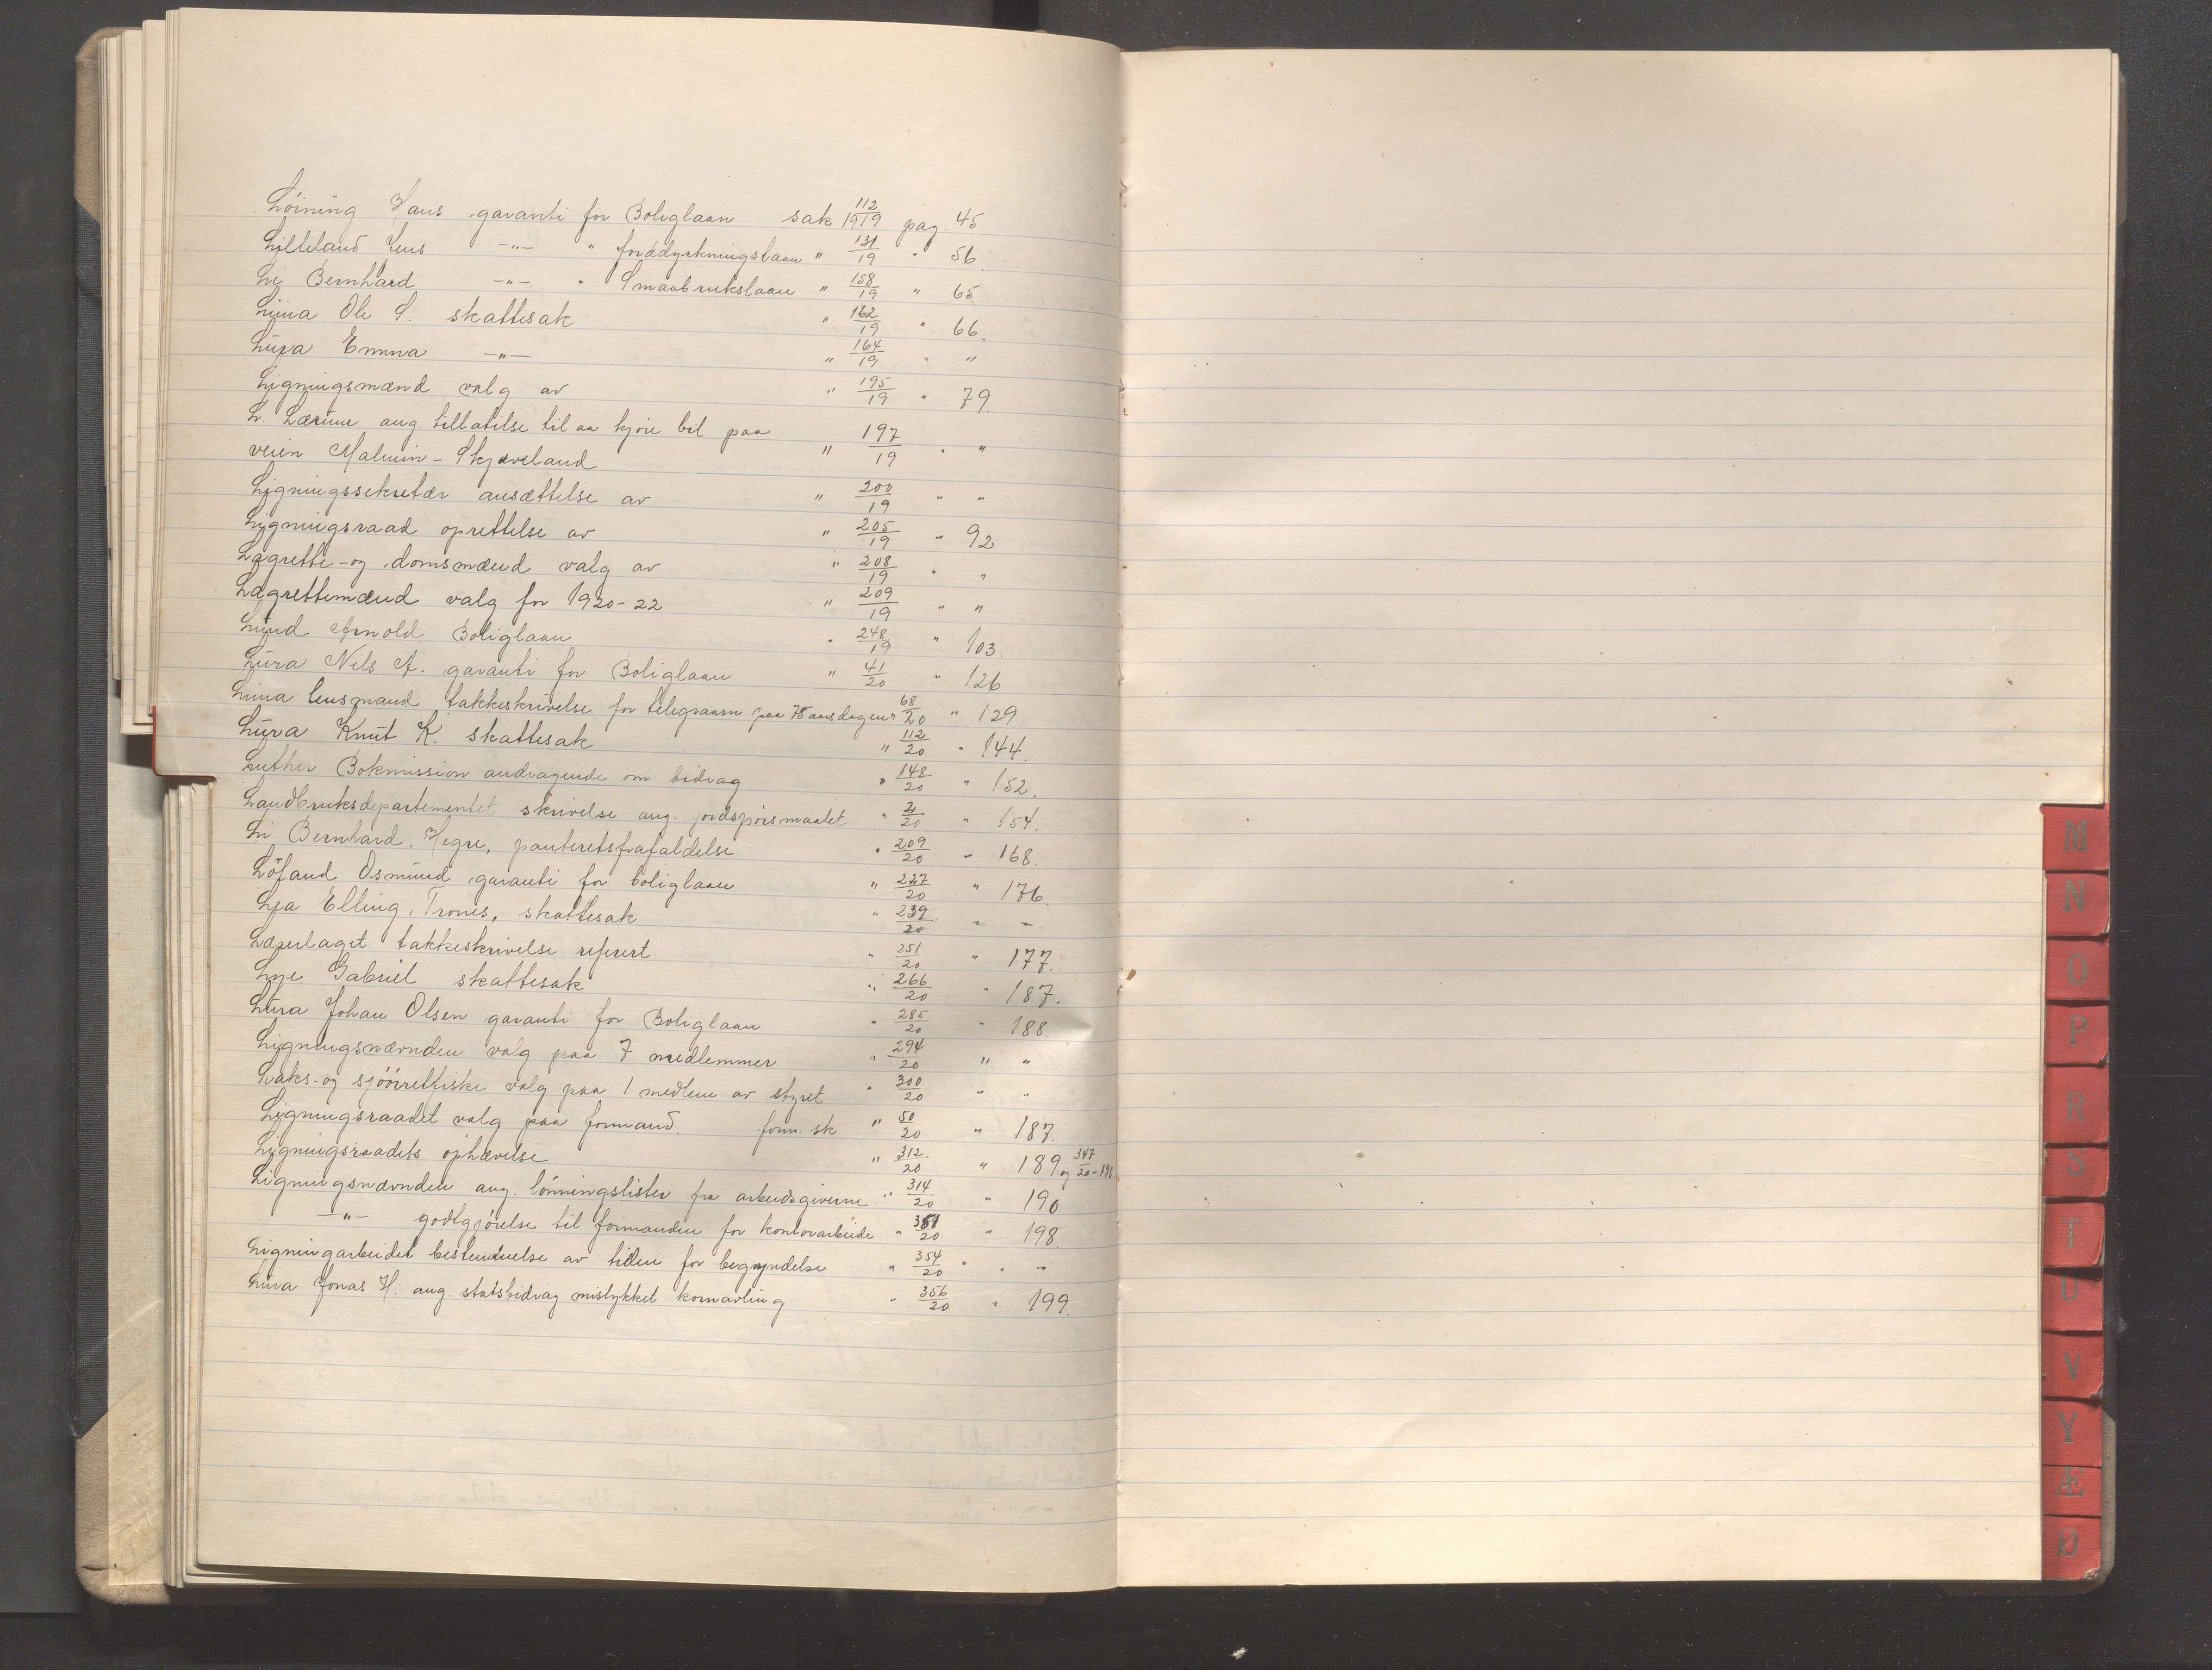 Löining Hans garanti for Boliglaan sak 112/1919 pag. 45
Lilleland Jens —"— " jorddyrkningslaan " 131/19 " 56
Li Bernhard —"— " Smaabrukslaan " 158/19 " 65
Lima Ole S. skattesak " 162/19 " 66.
Lura Emma —"— " 164/19 " "
Ligningsmænd valg av " 195/19 " 79.
L. Lærum ang. tillatelse til aa kjöre bil paa
veien Malmin - Skjæveland " 197/19 " "
Ligningssekretær ansættelse av " 200/19 " "
Ligningsraad oprettelse av " 205/19 " 92
Lagrette- og domsmænd valg av " 208/19 " "
Lagrettemænd valg for 1920-22 " 209/19 " "
Lund Arnold Boliglaan " 248/19 " 103.
Lura Nils A. garanti for Boliglaan " 41/20 " 126
Lima lensmand takkeskrivelse for telegraam paa 75 aarsdagen " 68/20 " 129
Lura Knut K. skattesak " 112/20 " 144.
Luther Bokmission andragende om bidrag " 148/20 " 152.
Landbruksdepartementet skrivelse ang. jordspörsmaalet " 2/20 " 154.
Li Bernhard, Hegre, panteretsfrafaldelse " 209/20 " 168.
Löland Osmund garanti for boliglaan " 227/20 " 176.
Lea Elling, Trones, skattesak " 239/20 " "
Lærerlaget takkeskrivelse referert " 251/20 " 177.
Lye Gabriel skattesak " 266/20 " 187.
Lura Johan Olsen garanti for Boliglaan " 285/20 " 188.
Ligningsnævnden valg paa 7 medlemmer " 294/20 " "
Laks- og sjöörretfiske valg paa 1 medlem av styret " 300/20 " "
Ligningsraadet valg paa formand. form. sk " 50/20 " 187.
Ligningsraadets ophævelse " 312/20 " 189 og 347/20 - 198
Ligningsnævnden ang. lönningslister fra arbeidsgiverne " 314/20 " 190
—"— godtgjörelse til formanden for kontorarbeide " 351/20 " 198.
Ligningarbeidet bestemmelse av tiden for begyndelse " 354/20 " "
Lura Jonas H. ang. statsbidrag mislykket kornavling " 356/20 " 199.
M
N
O
P
R
S
T
U
V
Y
Æ
Ø